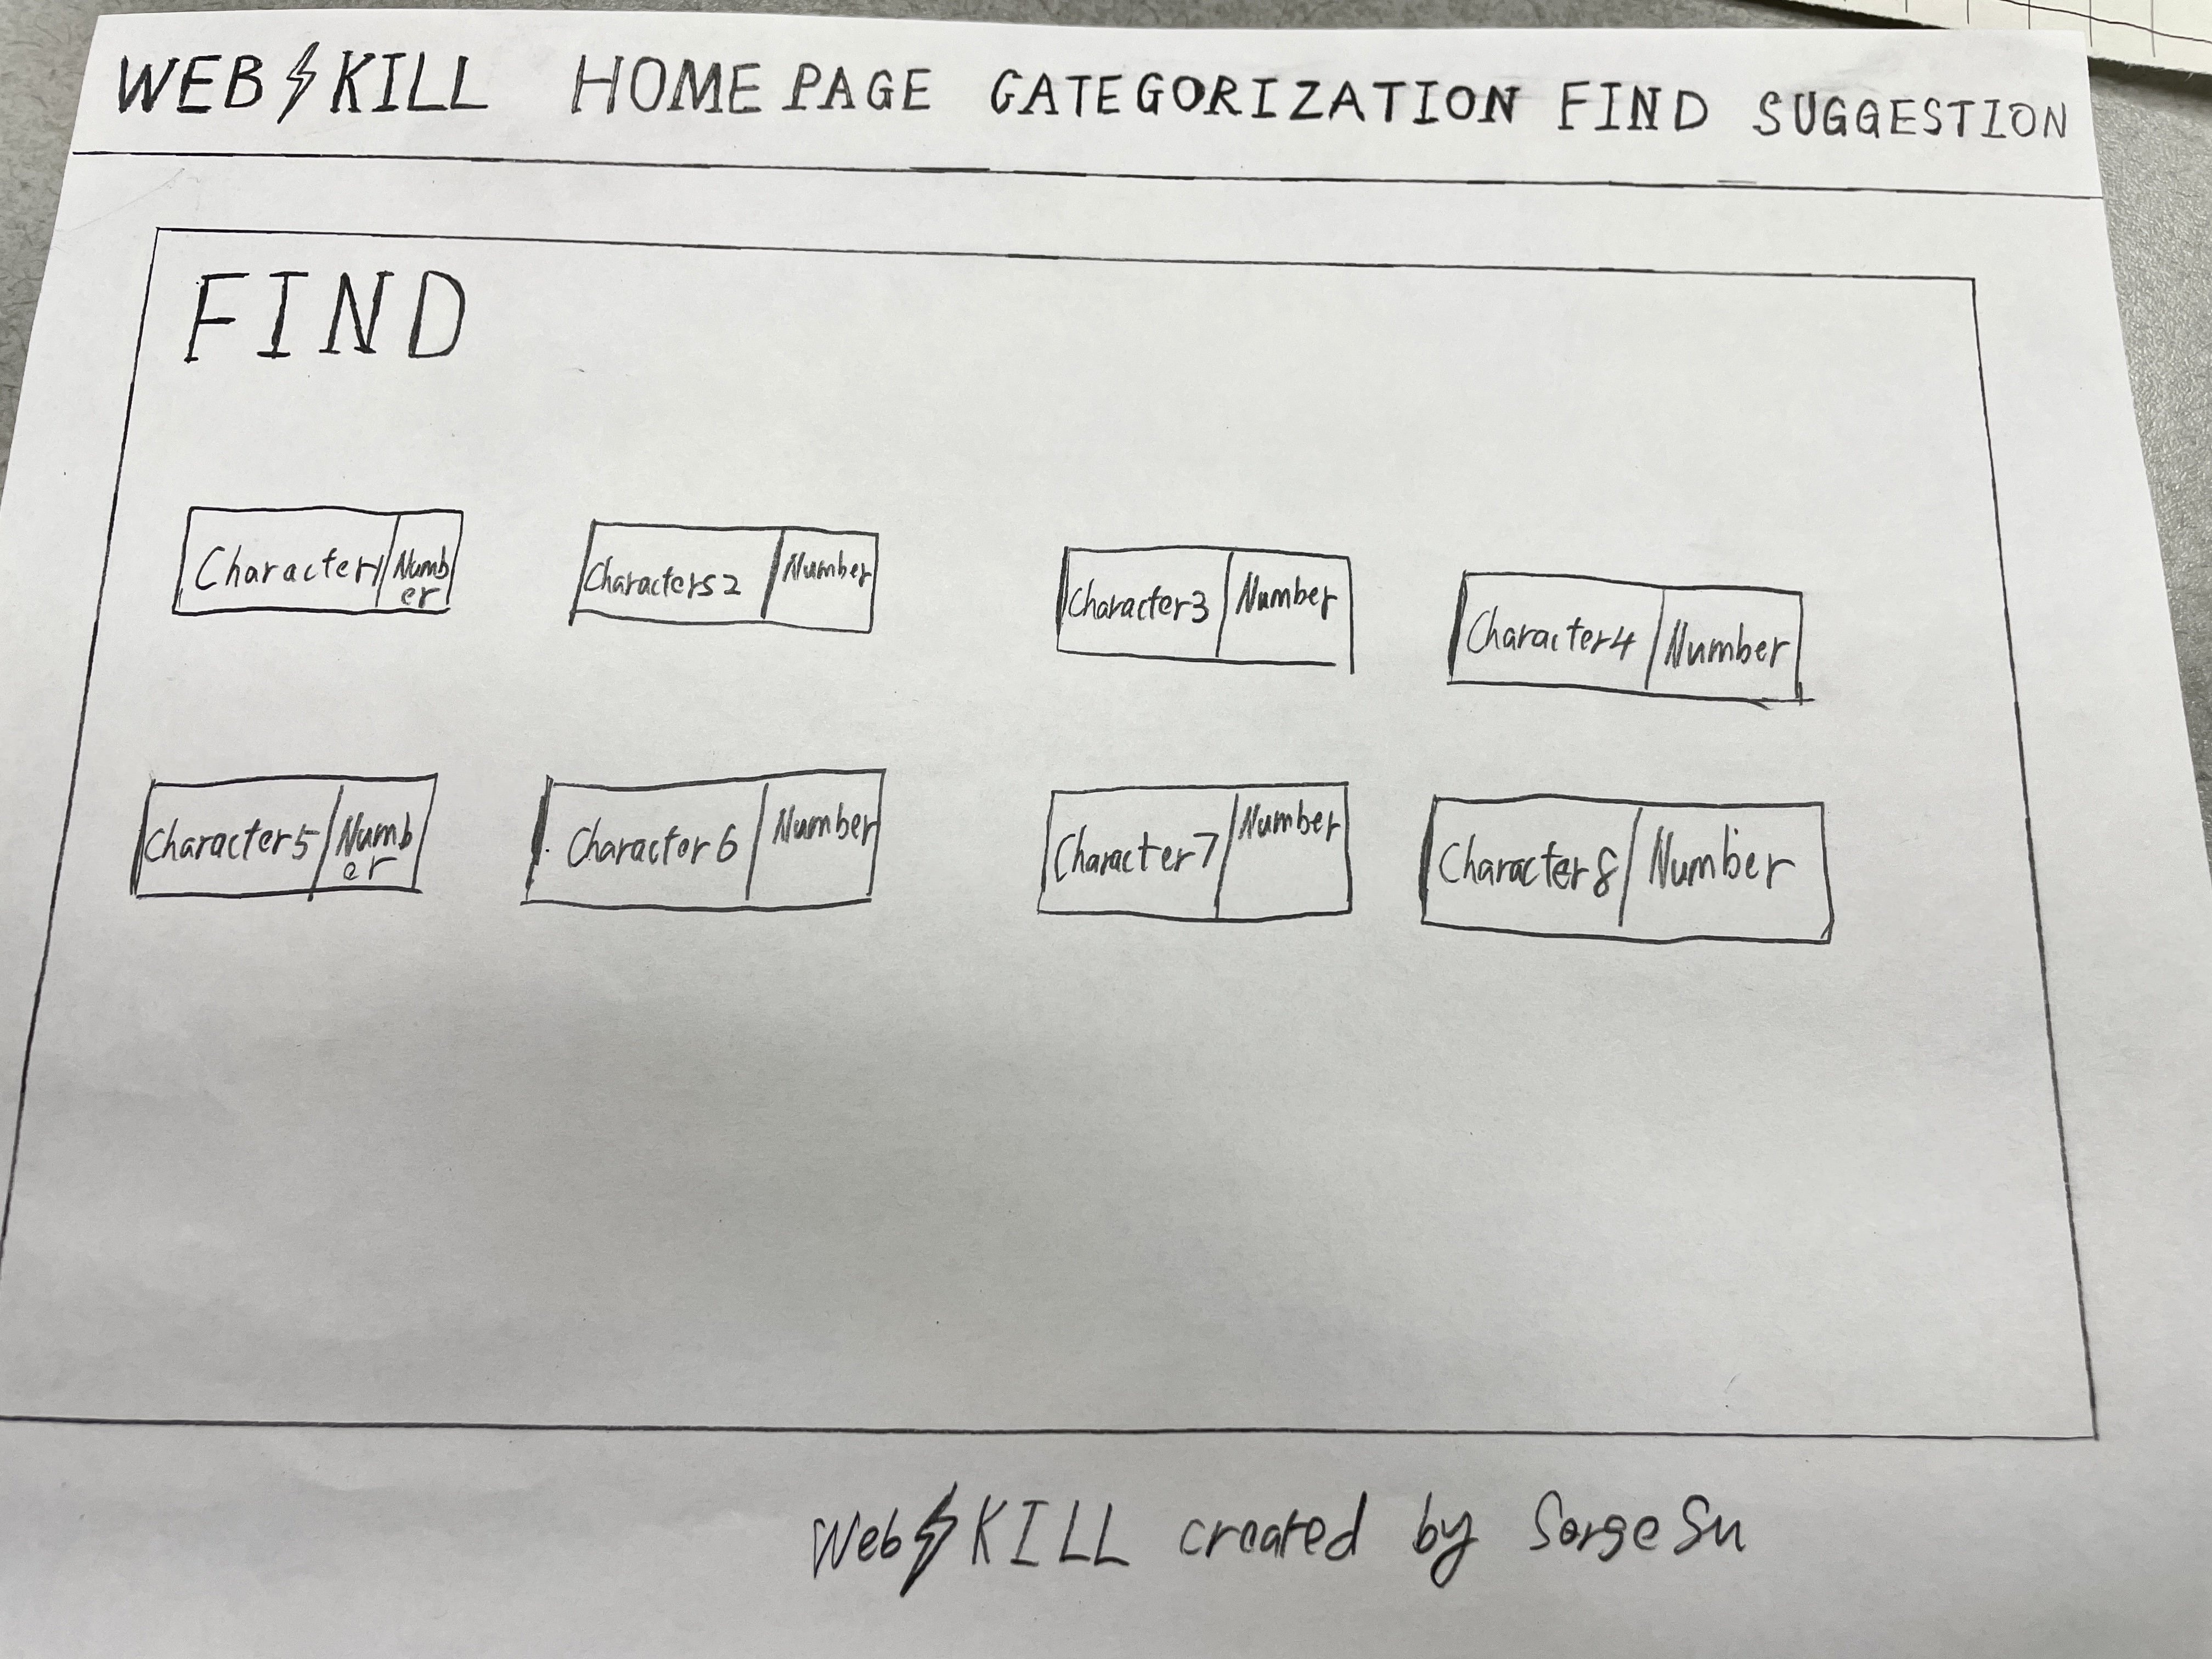 WEB⚡KILL HOME PAGE CATEGORIZATION FIND SUGGESTION
FIND
Character1 Numb
er
Characters2 Number
Character3 Number
Character4 Number
Character5 Numb
er
Character6 Number
Character7 Number
Character8 Number
Web⚡KILL created by Sorge Su